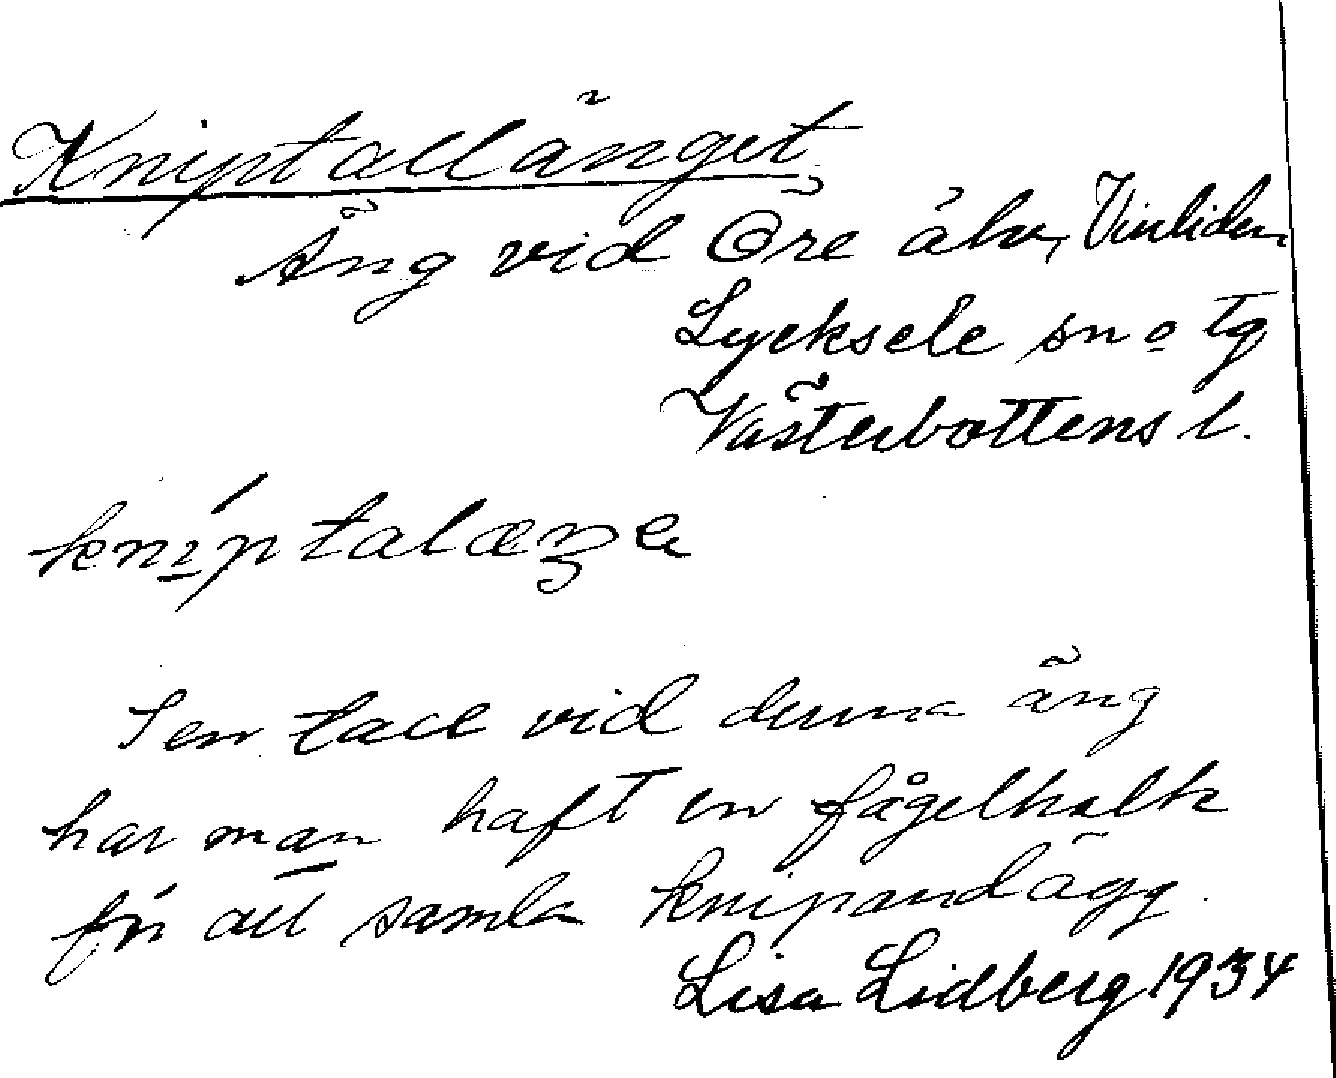 Kniptallänget
Äng vid Öre älv, Vinliden
Lycksele sn o tg
Västerbottens l.
kníptalæŋe
I en tall vid denna äng
har man haft en fågelholk
för att samla knipandägg.
Lisa Lidberg 1934